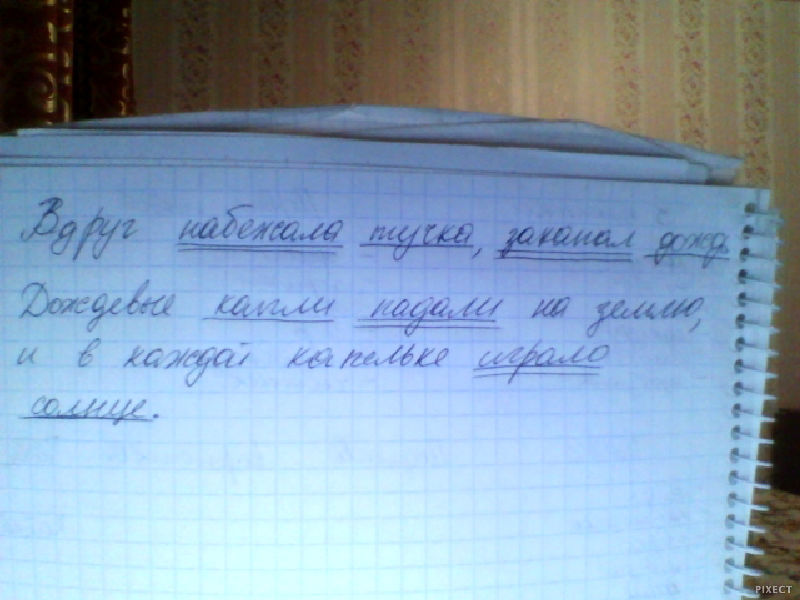 Вдруг набежала тучка, закапал дождь.
Дождевые капли падали на землю,
и в каждой капельке играло
солнце.
PIXECT